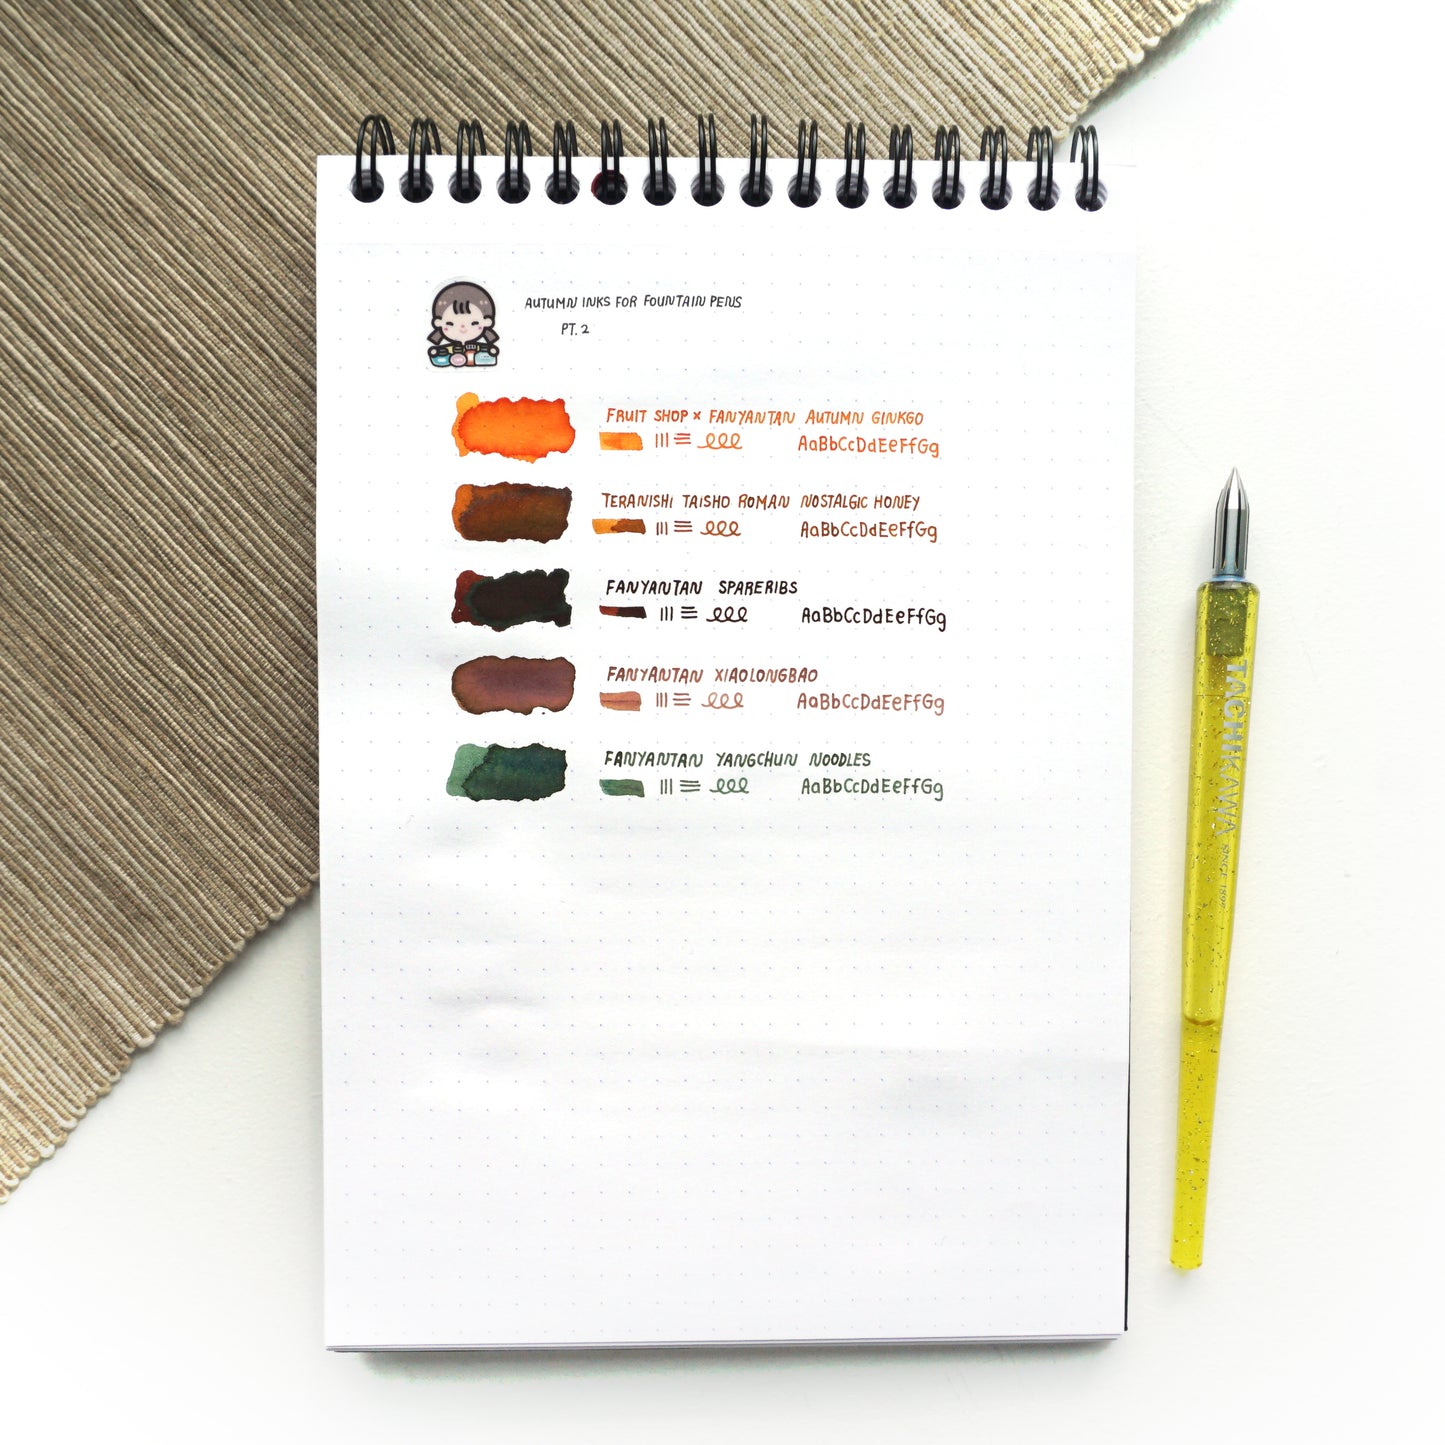 AUTUMN INKS FOR FOUNTAIN PENS
PT. 2
FRUIT SHOP × FANYANTAN AUTUMN GINKGO
AaBbCcDdEeFfGg
TERANISHI TAISHO ROMAN NOSTALGIC HONEY
AaBbCcDdEeFfGg
FANYANTAN SPARERIBS
AaBbCcDdEeFfGg
FANYANTAN XIAOLONGBAO
AaBbCcDdEeFfGg
FANYANTAN YANGCHUN NOODLES
AaBbCcDdEeFfGg
TACHIKAWA SINCE 1896